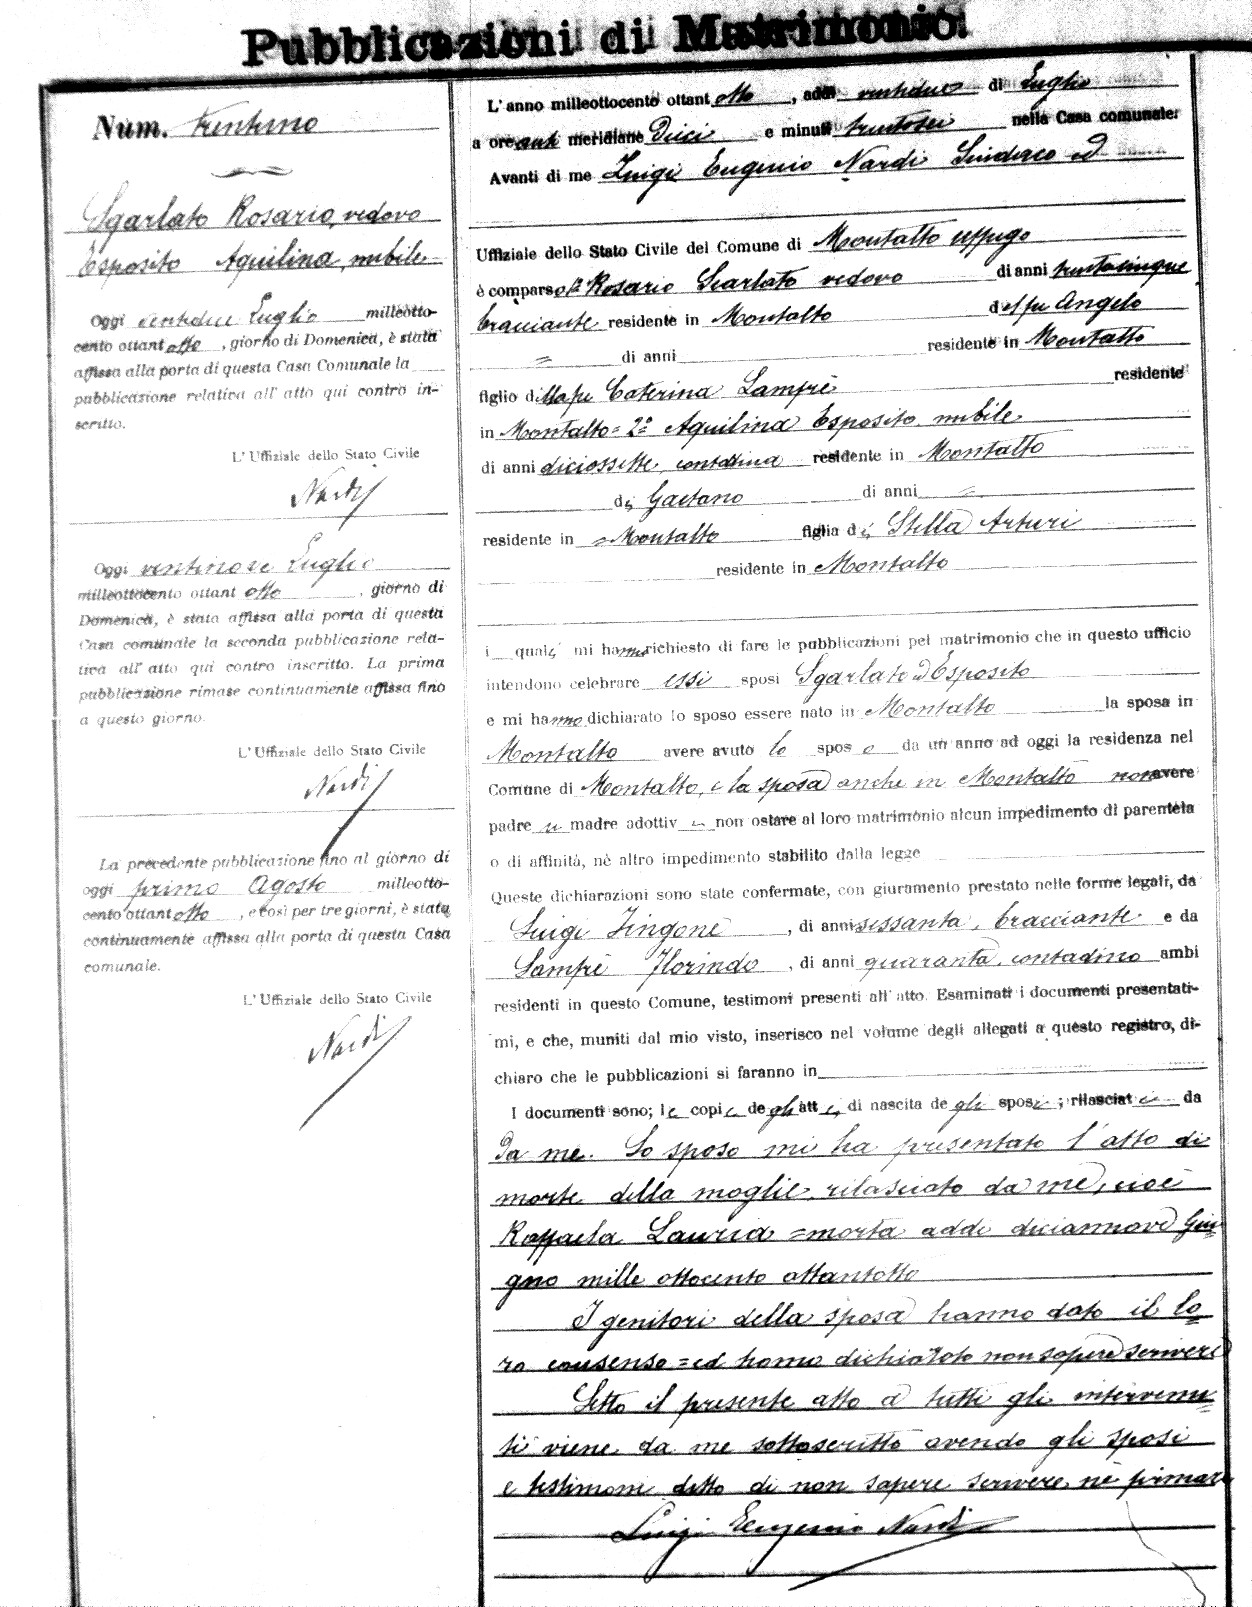 Pubblicazioni di Matrimonio.
Num. trentuno
Sgarlato Rosario, vedovo
Esposito Aquilina, nubile
Oggi ventidue Luglio milleotto-
cento ottant otto, giorno di Domenica, è stata
affissa alla porta di questa Casa Comunale la
pubblicazione relativa all'atto qui contro in-
scritto.
L'Uffiziale dello Stato Civile
Nardi
Oggi ventinove Luglio
milleottocento ottant otto, giorno di
Domenica, è stata affissa alla porta di questa
Casa comunale la seconda pubblicazione rela-
tiva all'atto qui contro inscritto. La prima
pubblicazione rimase continuamente affissa fino
a questo giorno.
L'Uffiziale dello Stato Civile
Nardi
La precedente pubblicazione fino al giorno di
oggi primo Agosto milleotto-
cento ottant otto, e così per tre giorni, è stata
continuamente affissa alla porta di questa Casa
comunale.
L'Uffiziale dello Stato Civile
Nardi
L'anno milleottocento ottant otto, addi ventidue di Luglio
a ore anti meridiane Dieci e minuti trentasei nella Casa comunale.
Avanti di me Luigi Eugenio Nardi Sindaco ed
Uffiziale dello Stato Civile del Comune di Montalto Uffugo
è comparso 1º Rosario Scarlato vedovo di anni trentacinque
bracciante residente in Montalto del fu Angelo
= di anni residente in Montalto
figlio della fu Caterina Lamprè residente
in Montalto = 2º Aquilina Esposito nubile
di anni diciossette, contadina residente in Montalto
di Gaetano di anni =
residente in = Montalto figlia di Stella Arturi
residente in Montalto
i quali mi hanno richiesto di fare le pubblicazioni pel matrimonio che in questo ufficio
intendono celebrare essi sposi Sgarlato ed Esposito
e mi hanno dichiarato lo sposo essere nato in Montalto la sposa in
Montalto avere avuto lo sposo da un anno ad oggi la residenza nel
Comune di Montalto, e la sposa anche in Montalto non avere
padre nè madre adottivi non ostare al loro matrimonio alcun impedimento di parentela
o di affinità, nè altro impedimento stabilito dalla legge
Queste dichiarazioni sono state confermate, con giuramento prestato nelle forme legali, da
Luigi Zingone, di anni sessanta, bracciante e da
Lamprè Florindo, di anni quaranta, contadino ambi
residenti in questo Comune, testimoni presenti all'atto. Esaminati i documenti presentati-
mi, e che, muniti dal mio visto, inserisco nel volume degli allegati a questo registro, di-
chiaro che le pubblicazioni si faranno in
I documenti sono; le copie degli atti di nascita degli sposi; rilasciate da
Da me. Lo sposo mi ha presentato l'atto di
morte della moglie rilasciato da me, cioè
Raffaela Lauria = morta addi diciannove Giu=
gno mille ottocento ottantotto
I genitori della sposa hanno dato il lo=
ro consenso = ed hanno dichiarato non sapere scrivere
Letto il presente atto a tutti gli intervenu=
ti viene da me sottoscritto avendo gli sposi
e testimoni detto di non sapere scrivere nè firmare
Luigi Eugenio Nardi